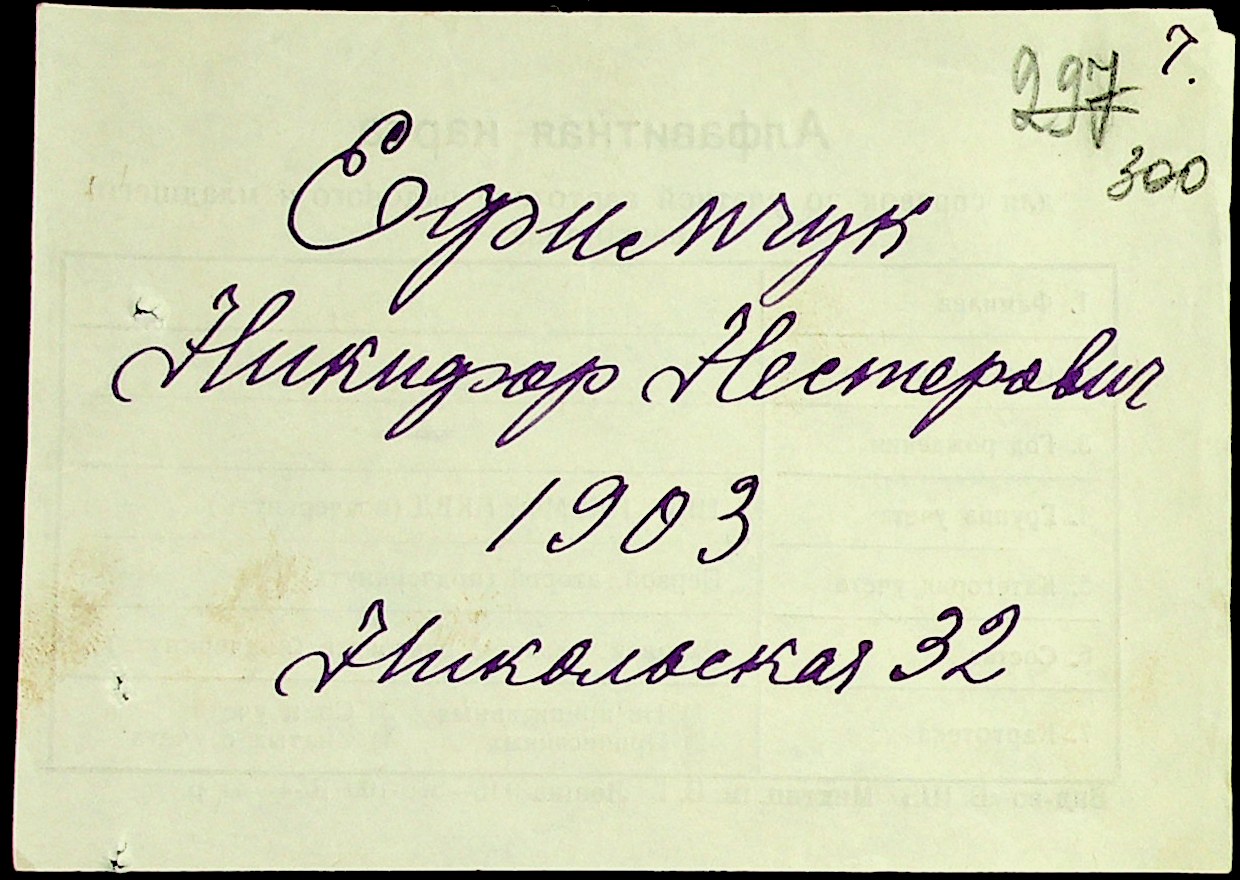 7.
297
300
Ефимчук
Никифор Нестерович
1903
Никольская 32